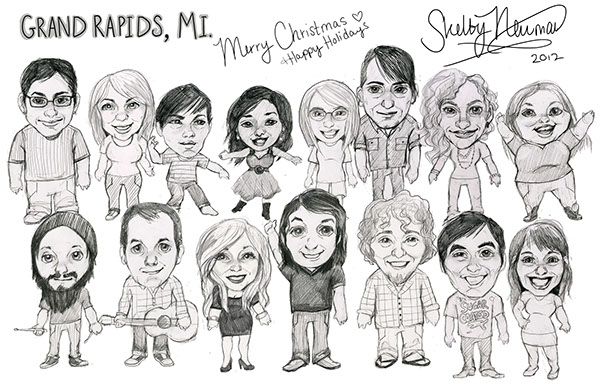 GRAND RAPIDS, MI.
Merry Christmas
+ Happy Holidays
Shelby Neuman
2012
SUGAR